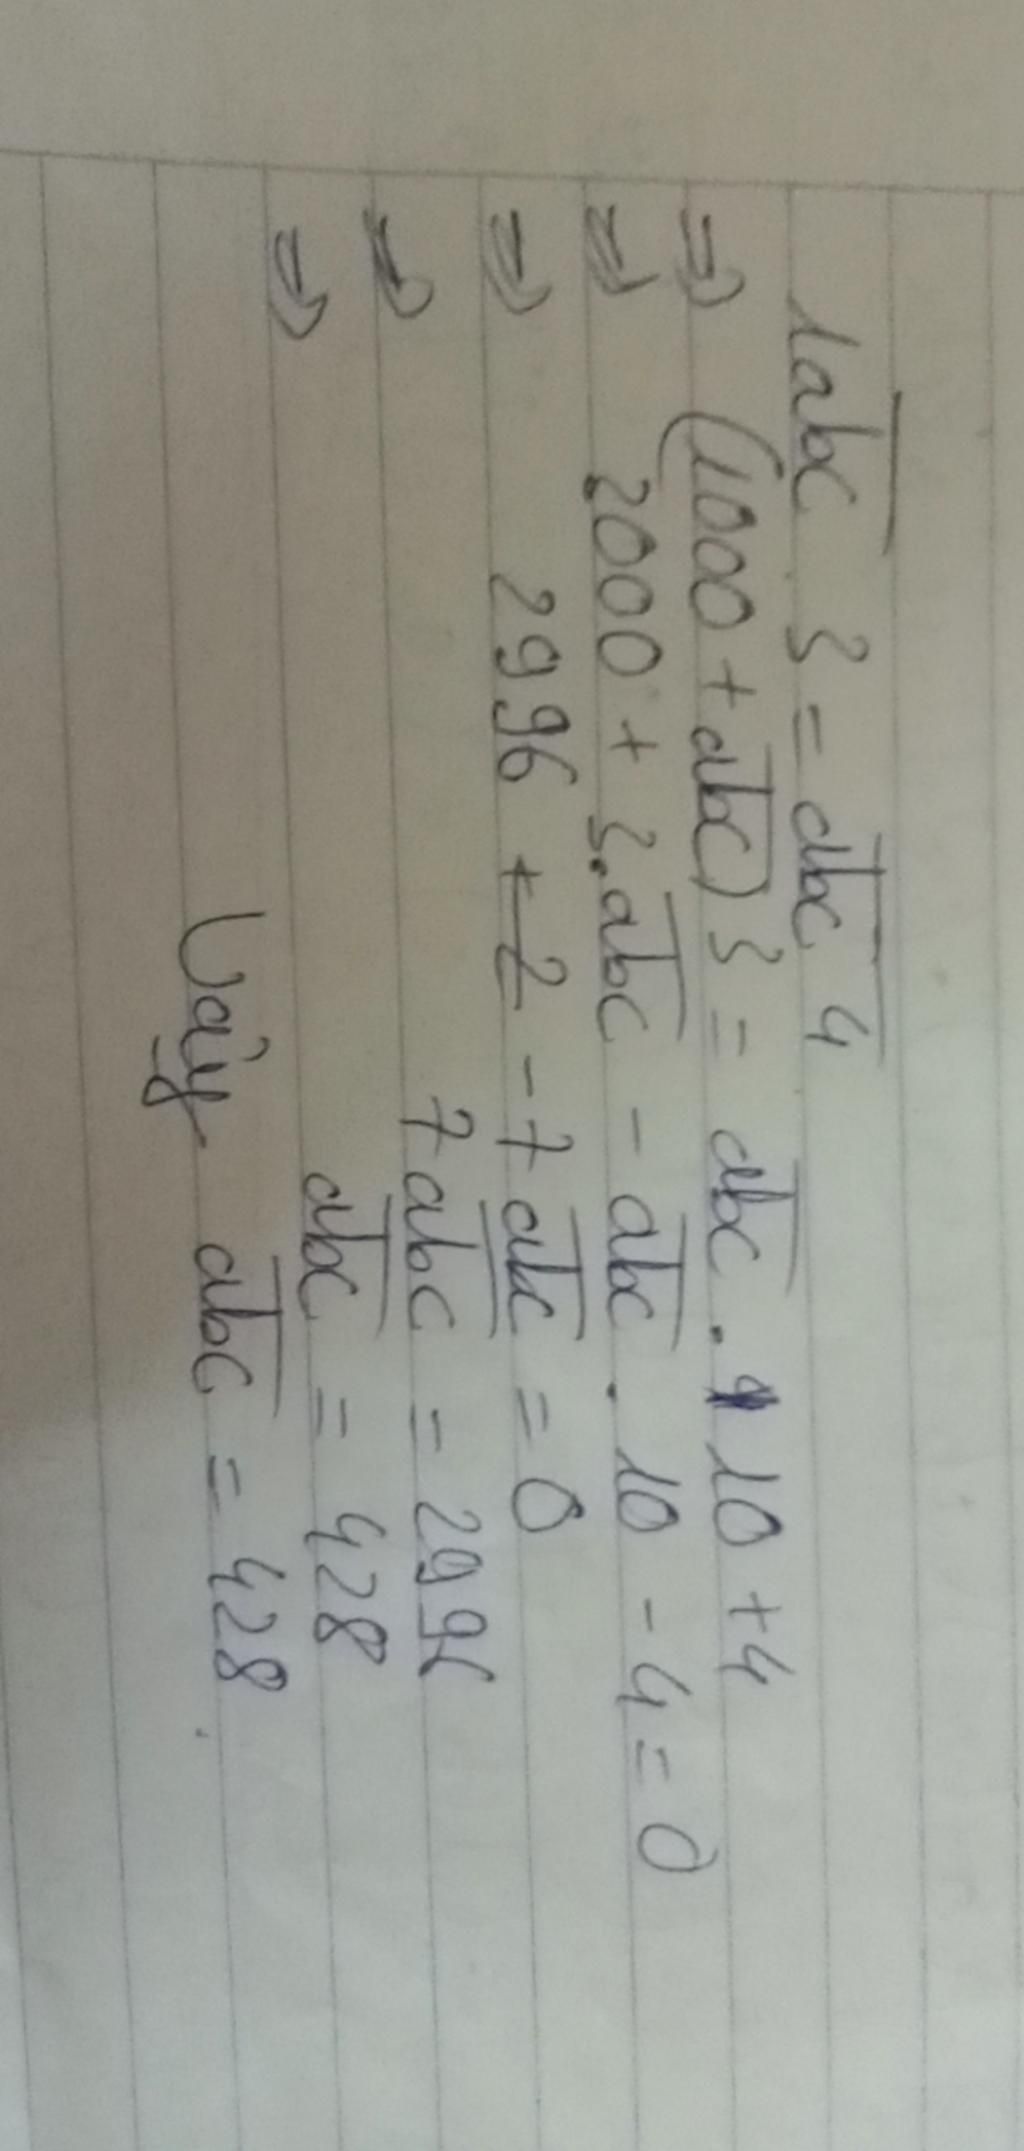 1abc 3 = abc 4
=> (1000 + abc) 3 = abc . 10 + 4
=> 2000 + 3.abc - abc . 10 - 4 = 0
=> 2996 - 7 abc = 0
=> 7 abc = 2996
=> abc = 428
Vậy abc = 428